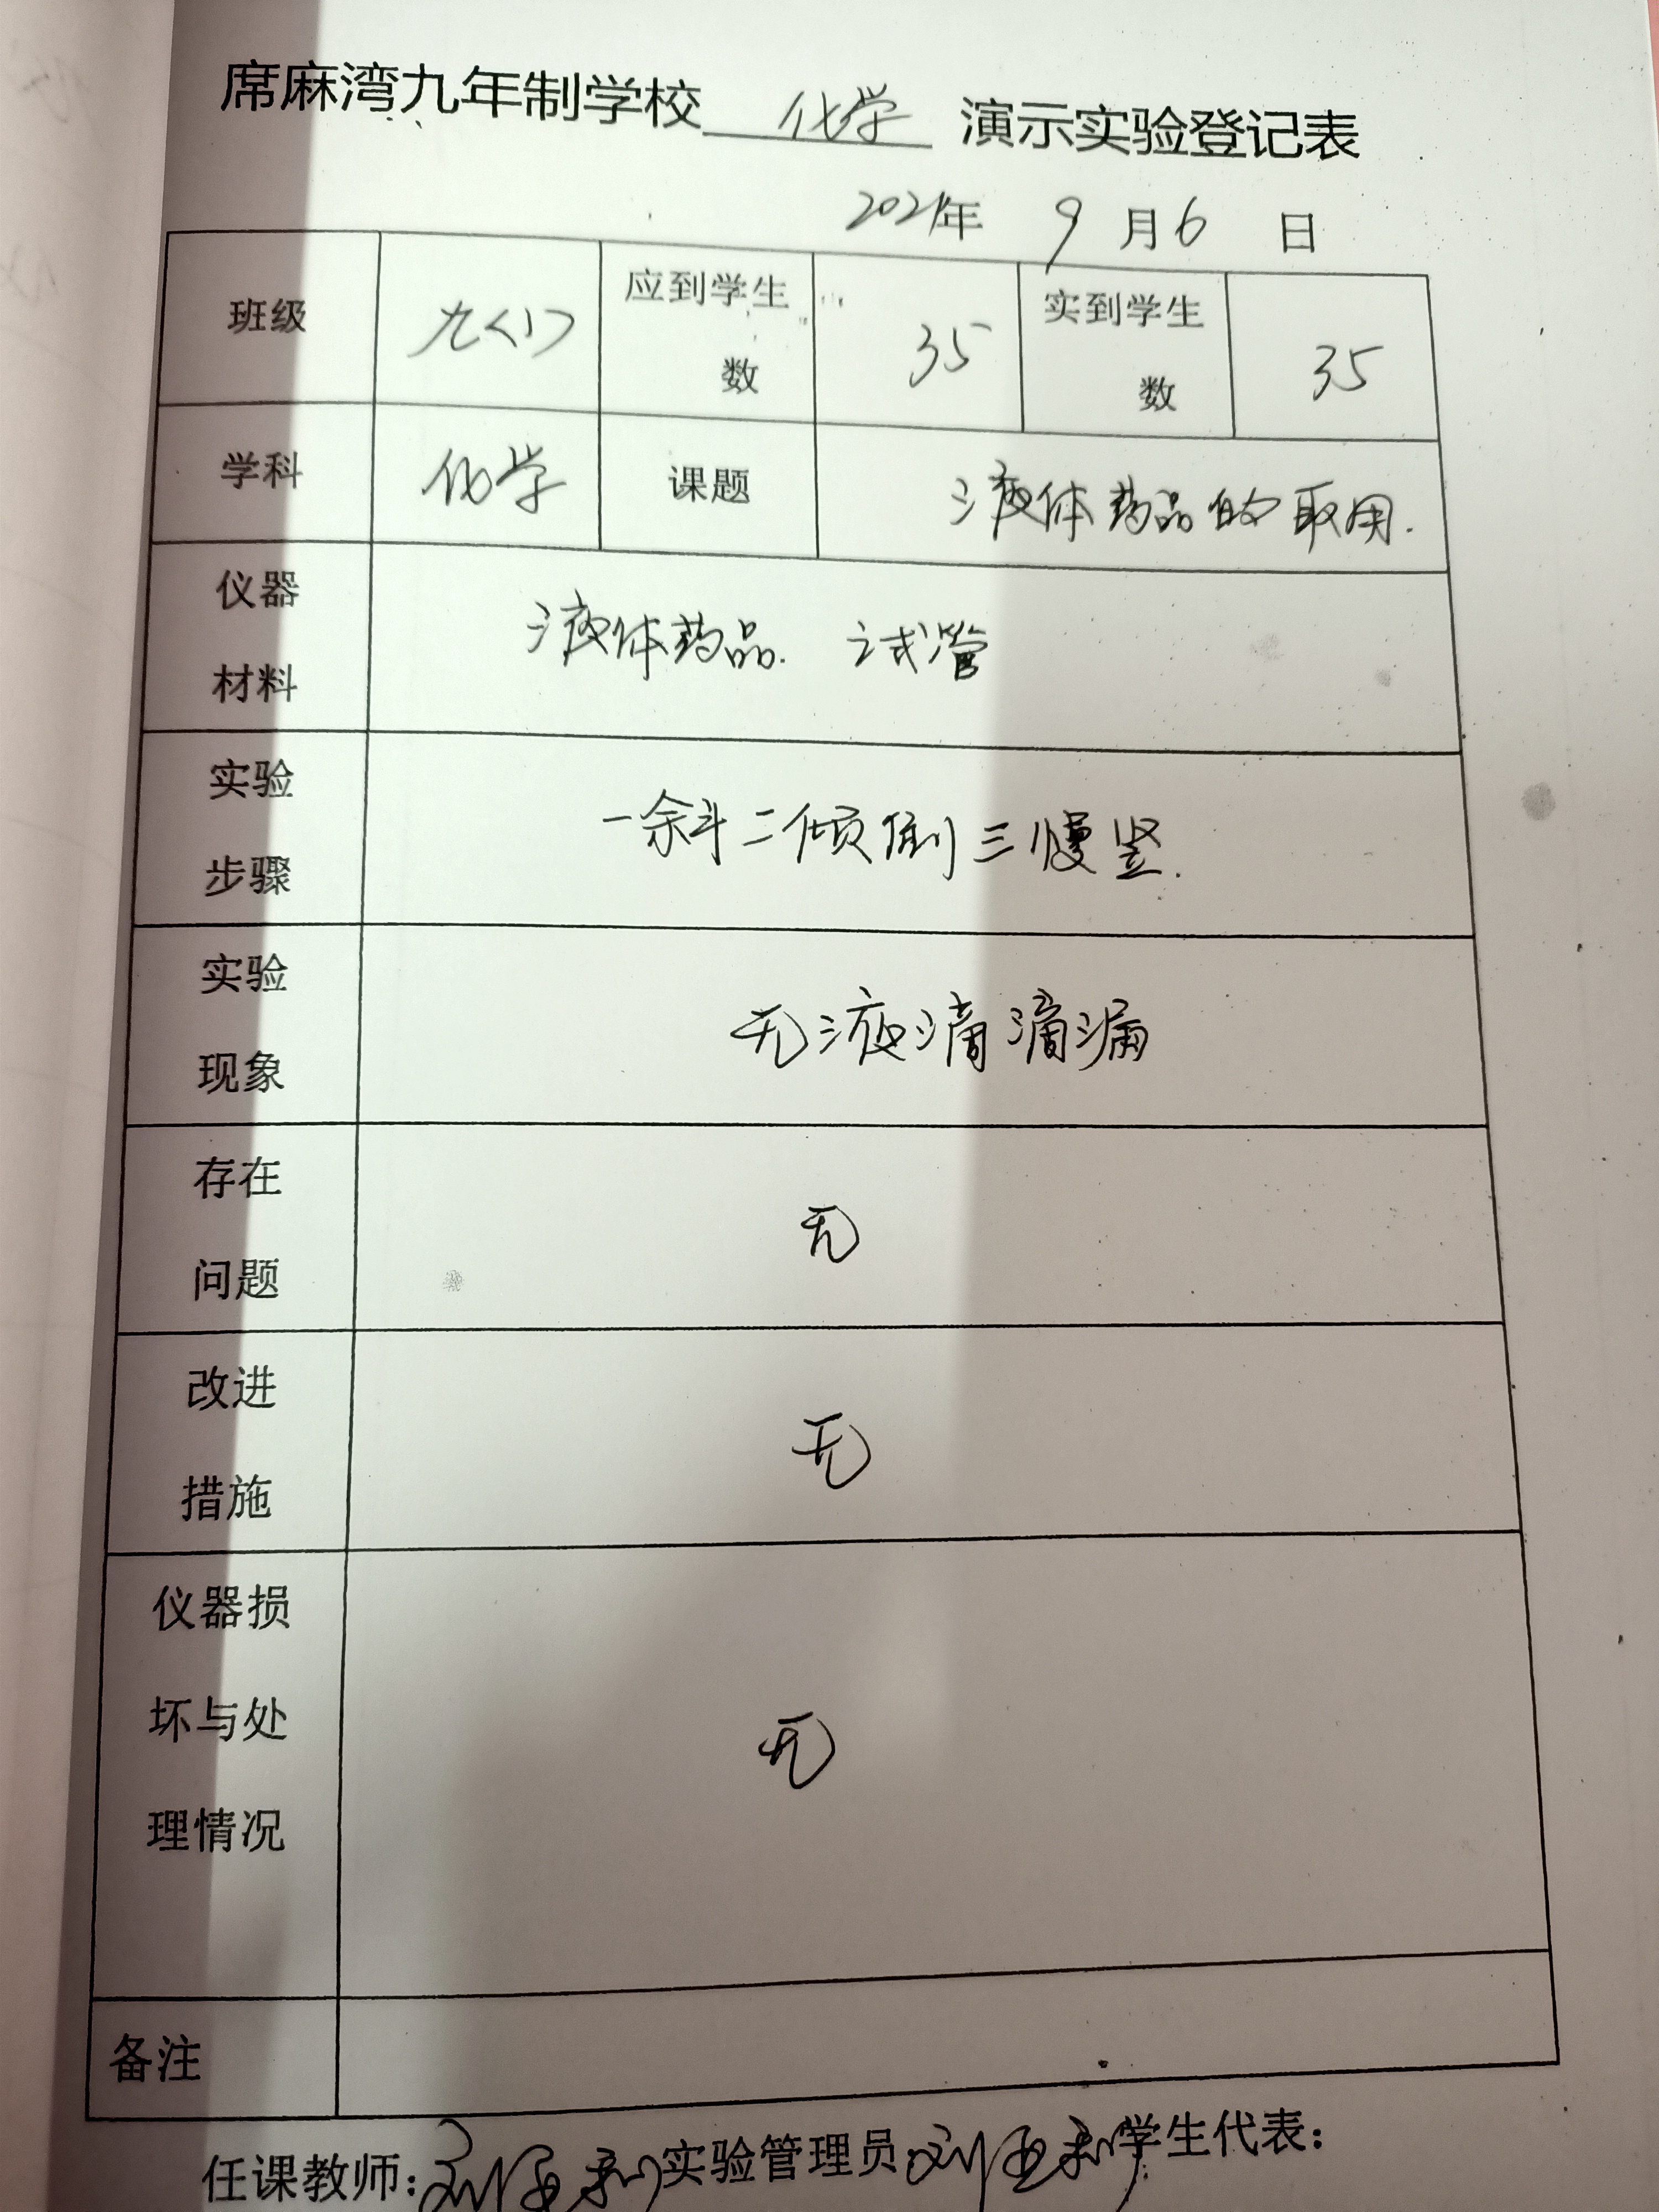 席麻湾九年制学校 化学 演示实验登记表
2021年 9 月 6 日
班级 九<1> 应到学生数 35 实到学生数 35
学科 化学 课题 液体药品的取用.
仪器材料 液体药品. 试管
实验步骤 一斜二倾倒三慢竖.
实验现象 无液滴滴漏
存在问题 无
改进措施 无
仪器损坏与处理情况 无
备注
任课教师: 刘亚利 实验管理员: 刘亚利 学生代表: